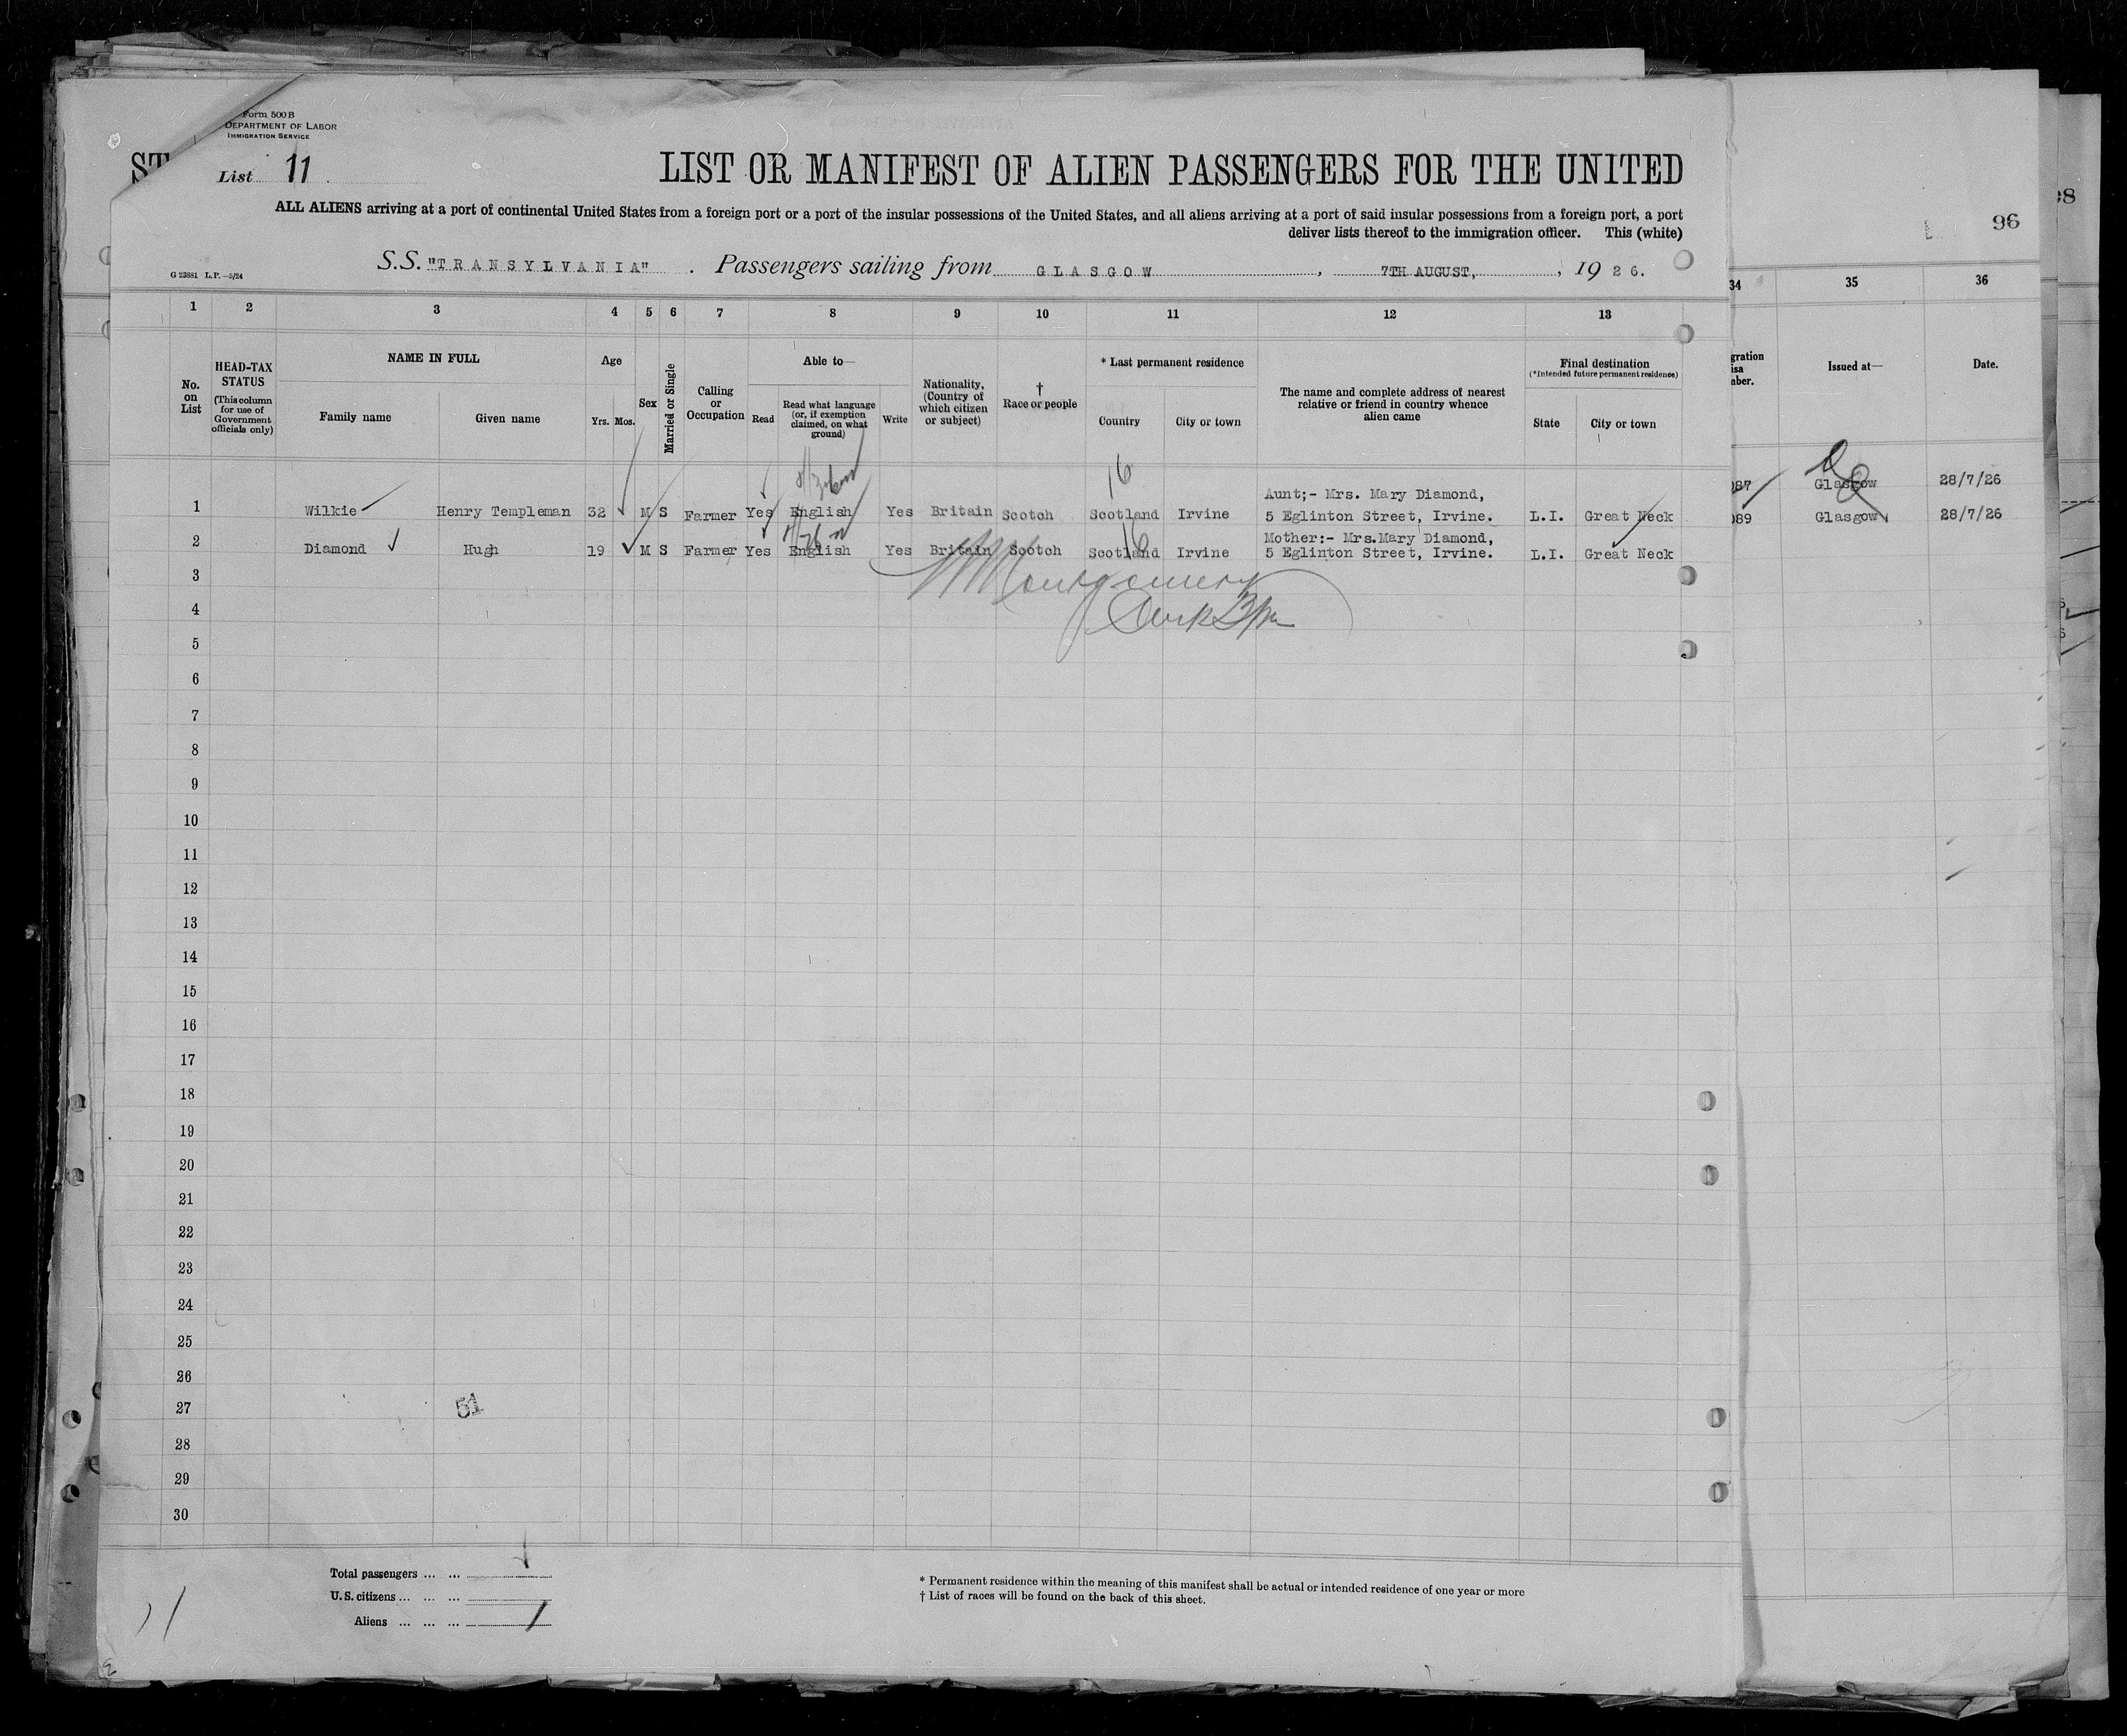 Form 500 B
DEPARTMENT OF LABOR
IMMIGRATION SERVICE
ST
List 11
LIST OR MANIFEST OF ALIEN PASSENGERS FOR THE UNITED
ALL ALIENS arriving at a port of continental United States from a foreign port or a port of the insular possessions of the United States, and all aliens arriving at a port of said insular possessions from a foreign port, a port
deliver lists thereof to the immigration officer. This (white)
G 23881 L.P.—5/24
S.S. "TRANSYLVANIA" . Passengers sailing from GLASGOW , 7TH AUGUST, , 1926.
96
1 2 3 4 5 6 7 8 9 10 11 12 13
34 35 36
No. on List
HEAD-TAX STATUS
(This column for use of Government officials only)
NAME IN FULL
Family name Given name
Age
Yrs. Mos.
Sex
Married or Single
Calling or Occupation
Able to—
Read
Read what language (or, if exemption claimed, on what ground)
Write
Nationality, (Country of which citizen or subject)
† Race or people
* Last permanent residence
Country City or town
The name and complete address of nearest relative or friend in country whence alien came
Final destination
(*Intended future permanent residence)
State City or town
Issued at— Date.
1 Wilkie Henry Templeman 32 M S Farmer Yes English Yes Britain Scotch Scotland Irvine Aunt;- Mrs. Mary Diamond,
5 Eglinton Street, Irvine. L.I. Great Neck
2 Diamond Hugh 19 M S Farmer Yes English Yes Britain Scotch Scotland Irvine Mother:- Mrs.Mary Diamond,
5 Eglinton Street, Irvine. L.I. Great Neck
16
16
087 Glasgow 28/7/26
089 Glasgow 28/7/26
Montgomery
Clerk
3
4
5
6
7
8
9
10
11
12
13
14
15
16
17
18
19
20
21
22
23
24
25
26
27
28
29
30
51
Total passengers ... ...
U.S. citizens ... ... ...
Aliens ... ... ... 1
11
* Permanent residence within the meaning of this manifest shall be actual or intended residence of one year or more
† List of races will be found on the back of this sheet.